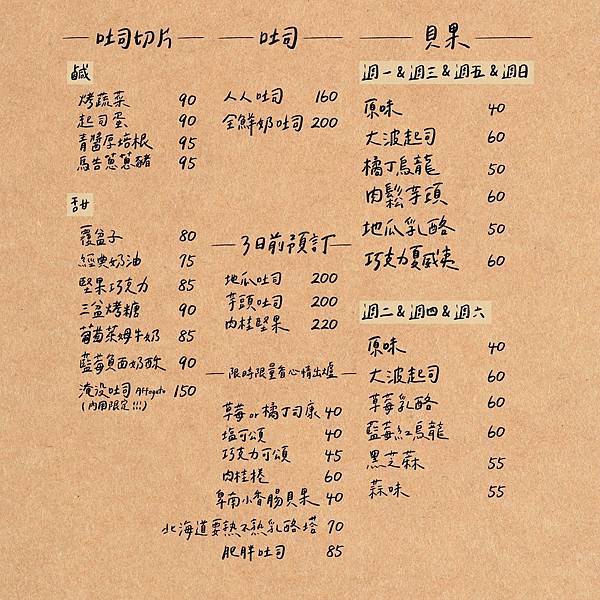 吐司切片
鹹
烤蔬菜 90
起司蛋 90
青醬厚培根 95
馬告蔥蔥豬 95
甜
覆盆子 80
經典奶油 75
堅果巧克力 85
三盆烤糖 90
葡萄茶姆牛奶 85
藍莓貝西奶酥 90
淹没吐司 Affogato 150
(內用限定!!!)
吐司
人人吐司 160
全鮮奶吐司 200
3日前預訂
地瓜吐司 200
芋頭吐司 200
肉桂堅果 220
限時限量看心情出爐
草莓or橘丁司康 40
塩可頌 40
巧克力可頌 45
肉桂捲 60
阜南小香腸貝果 40
北海道要熱不熱乳酪塔 70
肥胖吐司 85
貝果
週一&週三&週五&週日
原味 40
大波起司 60
橘丁烏龍 50
肉鬆芋頭 60
地瓜乳酪 50
巧克力夏威夷 60
週二&週四&週六
原味 40
大波起司 60
草莓乳酪 60
藍莓紅烏龍 60
黑芝蔴 55
蒜味 55